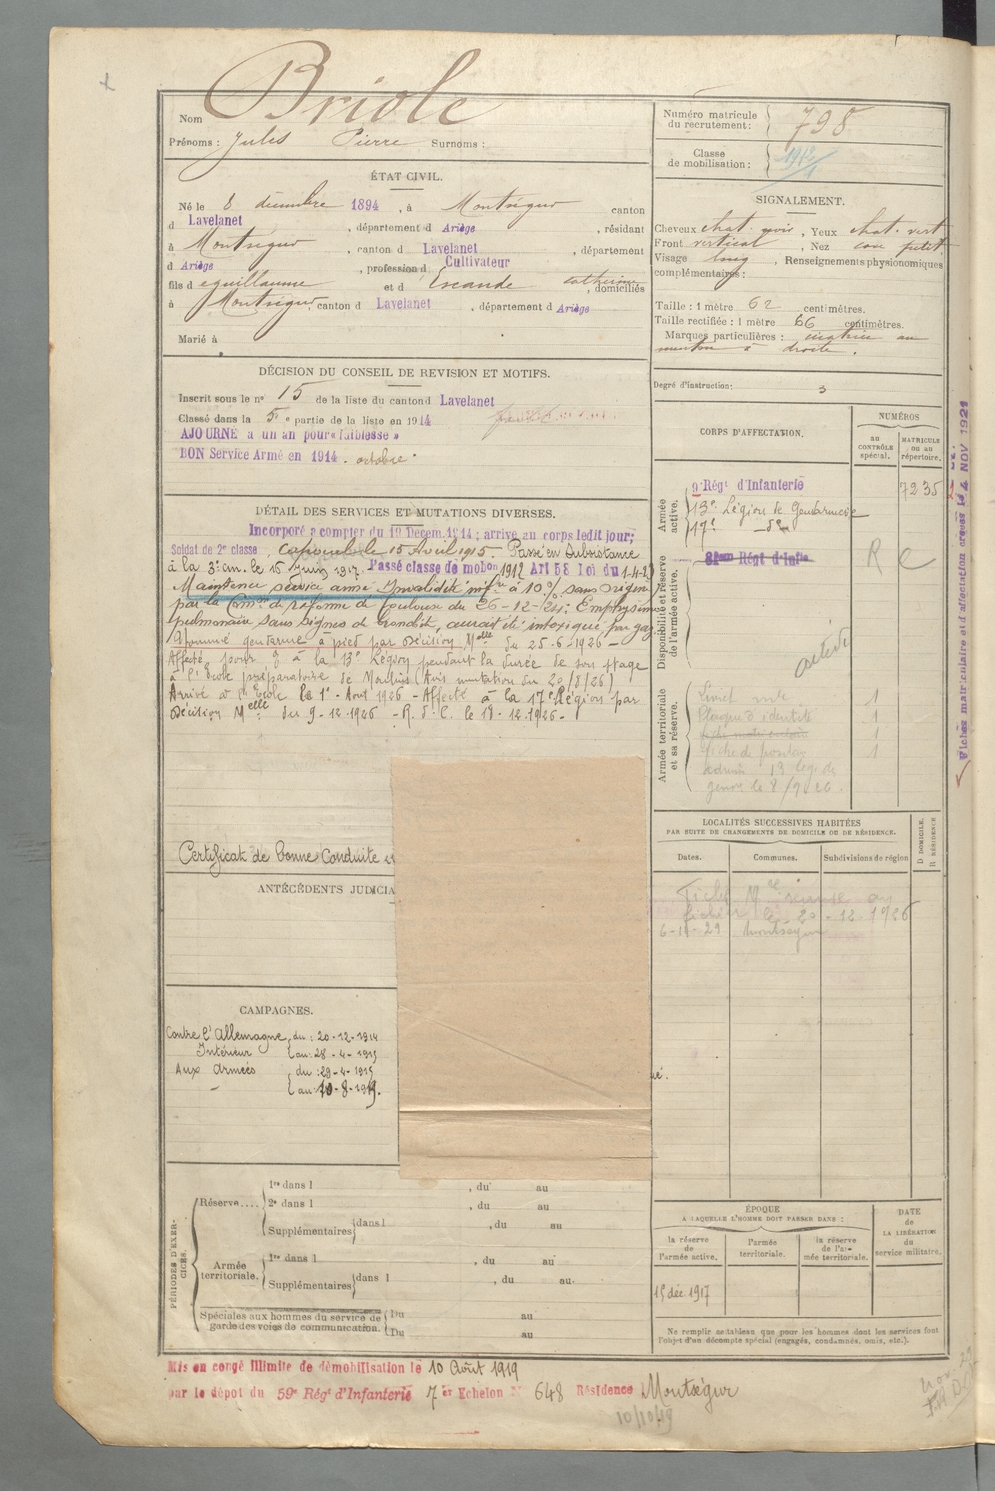 Nom Briole
Prénoms : Jules Pierre Surnoms :
ÉTAT CIVIL.
Né le 8 décembre 1894, à Montségur canton
d Lavelanet, département d Ariège, résidant
à Montségur, canton d Lavelanet, département
d Ariège, profession d Cultivateur
fils d eguillaume et d Escande Catherine, domiciliés
à Montségur, canton d Lavelanet, département d Ariège
Marié à
DÉCISION DU CONSEIL DE REVISION ET MOTIFS.
Inscrit sous le n° 15 de la liste du canton d Lavelanet
Classé dans la 5e partie de la liste en 1914
AJOURNE à un an pour « faiblesse »
BON Service Armé en 1914. octobre
DÉTAIL DES SERVICES ET MUTATIONS DIVERSES.
Incorporé à compter du 19 Décem. 1914; arrivé au corps ledit jour;
Soldat de 2e classe, Caporal le 15 Avril 1915. Passé en Subsistance
à la 3e cie. le 15 Juin 1917. Passé classe de mobon 1912 Art 58 Loi du 1-4-23
Maintenu service armé Invalidité infre à 10% sans
par la Comon de réforme de Toulouse du 26-12-24: Emphysème
pulmonaire sans signes de bronchite, aurait été intoxiqué par gaz
Nommé gendarme à pied par Décision Melle du 25-6-1926 -
Affecté pour à la 13e Légion pendant la durée de son stage
à l'École préparatoire de Moulins (Avis mutation du 20/8/26)
Arrivé à l'École le 1er Aout 1926 - Affecté à la 17e Légion par
Décision Melle du 9-12-1926 - R. d. C. le 18-12-1926 -
Certificat de bonne Conduite
ANTÉCÉDENTS JUDICIA
CAMPAGNES.
Contre l'Allemagne, du : 20-12-1914
Intérieur au: 28-4-1915
Aux Armées du : 29-4-1915
- au: 10-8-1919.
PÉRIODES D'EXERCICES.
Réserve....
1re dans l , du au
2e dans l , du au
Supplémentaires dans l , du au
Armée territoriale.
1re dans l , du au
Supplémentaires dans l , du au
Spéciales aux hommes du service de garde des voies de communication.
Du au
Du au
Mis en congé illimité de démobilisation le 10 Août 1919
par le dépôt du 59e Régt d'Infanterie 7 er Echelon N° 648 Résidence Montségur
10/10/49
Numéro matricule du recrutement : 798
Classe de mobilisation : 1912
SIGNALEMENT.
Cheveux chat. , Yeux chat. vert
Front vertical, Nez cave petit
Visage long, Renseignements physionomiques
complémentaires :
Taille : 1 mètre 62 centimètres.
Taille rectifiée : 1 mètre 66 centimètres.
Marques particulières : cicatrice au
menton à droite.
Degré d'instruction : 3
CORPS D'AFFECTATION.
NUMÉROS
AU CONTRÔLE spécial.
MATRICULE OU AU répertoire.
Armée active.
9e Régt d'Infanterie 7235
13e Légion de Gendarmerie
17e -de-
Disponibilité et réserve de l'armée active.
Régt d'Infie
R C
Armée territoriale et sa réserve.
Livret 1
Plaque d'identité 1
1
Fiche de 1
13 leg. de
gendie le 8/9 26.
LOCALITÉS SUCCESSIVES HABITÉES
PAR SUITE DE CHANGEMENTS DE DOMICILE OU DE RÉSIDENCE.
Dates.
Communes.
Subdivisions de région
D DOMICILE.
R RÉSIDENCE
Fiche au
fichier le 20-12-1926
Montségur
ÉPOQUE
A LAQUELLE L'HOMME DOIT PASSER DANS :
la réserve de l'armée active.
l'armée territoriale.
la réserve de l'armée territoriale.
DATE de LA LIBÉRATION du service militaire.
15 déc. 1917
Ne remplir ce tableau que pour les hommes dont les services font
l'objet d'un décompte spécial (engagés, condamnés, omis, etc.).
Fiches matriculaire et d'affectation créées le 4 NOV 1921